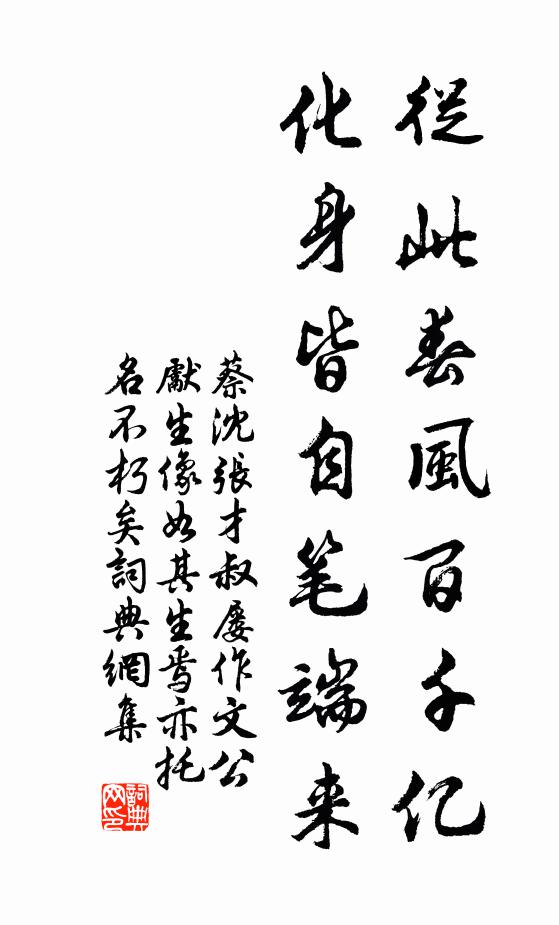 從此春風百千亿
化身皆自笔端来
蔡沈張才叔屡作文公
獻生像如其生焉亦托
名不朽矣詞典網集
詞典网印